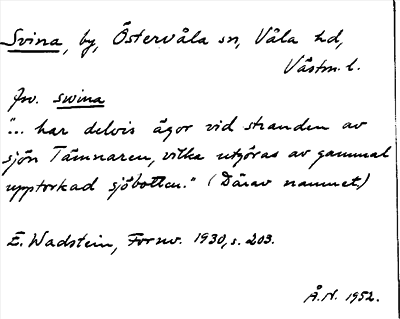 Svina, by, Östervåla sn, Våla hd,
Västm. l.
Jw. swina
"... har delvis ägor vid stranden av
sjön Tämnaren, vilka utgöras av gammal
upptorkad sjöbotten." (Därav namnet)
E. Wadstein, Fornv. 1930, s. 203.
Å.N. 1952.